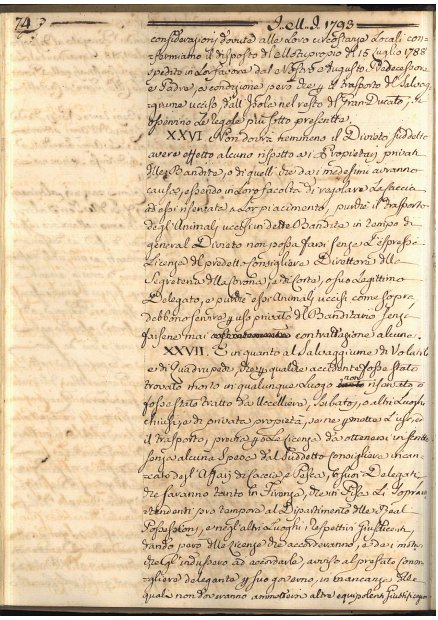 74
I. M. I. 1793
considerazioni dovute alle Loro circostanze Locali con-
fermiamo il disposto del Motuproprio de' 15 Luglio 1788
spedito in Lor favore dal Nostro Augusto Predecessore
e Padre, a condizione però che il trasporto del Salvag-
giume ucciso dall'Isola nel resto del Gran Ducato, si
osservino Le regole più sotto prescritte.
XXVI. Non dovrà nemmeno il Divieto suddetto
avere effetto alcuno rispetto ai Proprietarj privati
delle Bandite, o di quelli che da i medesimi avranno
causa, essendo in Loro facoltà di regolare La caccia
ad essi riservata a Lor piacimento, purchè il trasporto
degl'Animali uccisi in dette Bandite in tempo di
general Divieto non possa farsi senza L'espressa
Licenza del predetto Consigliere Direttore della
Segreteria della Corona, e di Corte, o suo Legittimo
Delegato, e purchè essi Animali uccisi come sopra
debbono servire p uso privato del Banditario senza
farsene mai contrattazione alcuna.
XXVII. E in quanto al Salvaggiume di Volatili
e di Quadrupedi, che p qualche accidente fosse stato
trovato morto in qualunque Luogo non riservato, o
fosse stato tratto da Uccelliere, Serbatoj, o altri Luoghi
chiusi, e di privata proprietà, se ne permette L'uso, ed
il trasporto, previa p La Licenza da ottenersi in scritto
senza alcuna Spesa dal suddetto Consigliere incari-
cato degl'Affari di Caccia, e Pesca, o suoi Delegati
che saranno tanto in Firenze, che in Pisa Li Soprin-
tendenti pro tempore al Dipartimento delle Reali
Possessioni, e negl'altri Luoghi i respettivi Giusdicenti,
dando però delle Licenze che accorderanno, e de' i motivi
che gl'indussero ad accordarle, avviso al prefato Consi-
gliere delegante p suo governo, in mancanza delle
quali non dovranno ammettersi altre equipollenti giustificazio